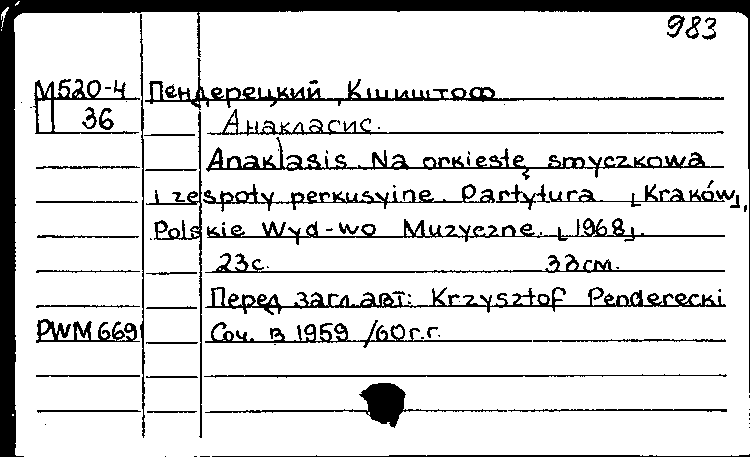 983
М520-4 Пендерецкий, Кшиштоф
П 36 Анакласис.
Anaklasis. Na orkiestę smyczkowa
i zespoły perkusyine. Partytura. [Kraków],
Polskie Wyd-wo Muzyczne. [1968].
23с. 33см.
Перед загл. авт: Krzysztof Penderecki
PWM 669 Соч. в 1959/60г.г.